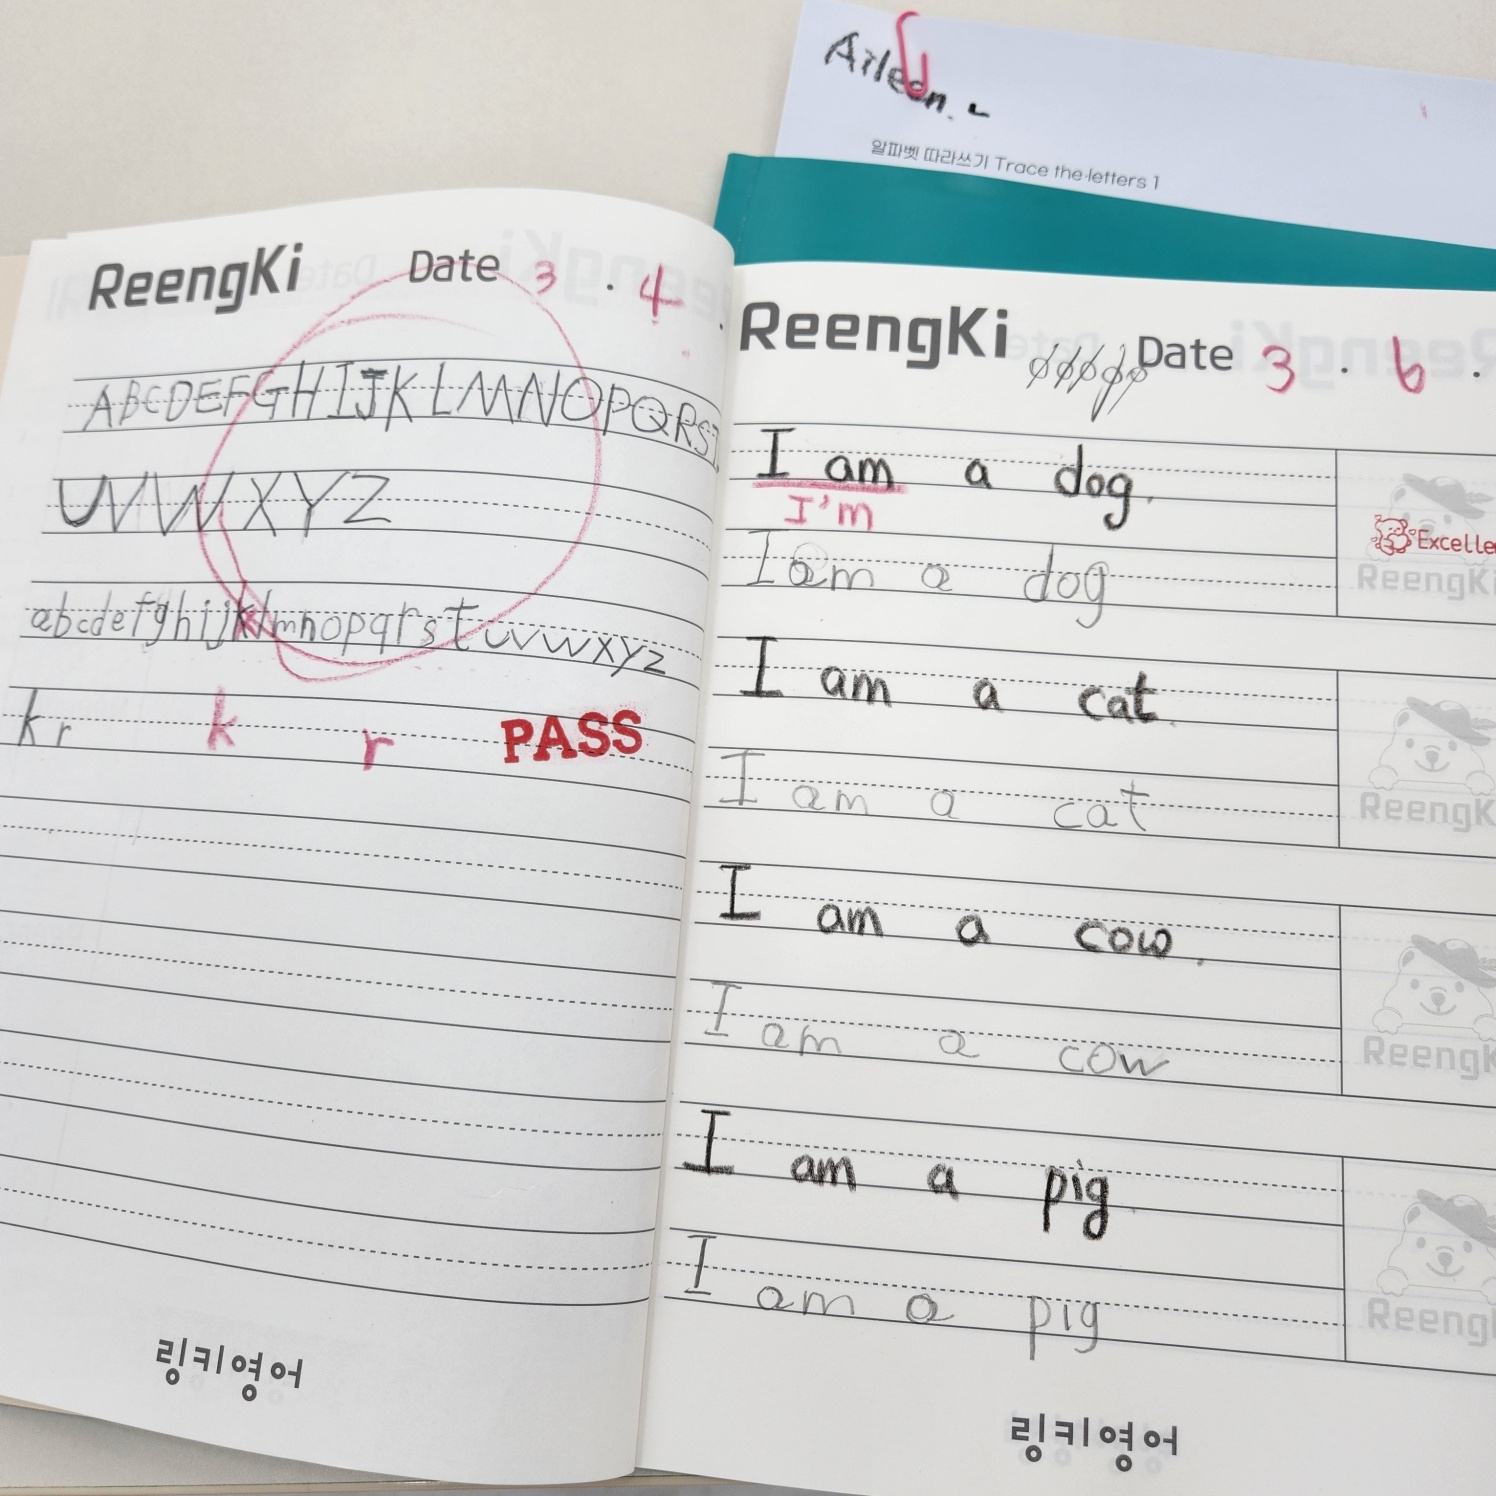 Aileen.
알파벳 따라쓰기 Trace the letters 1
ReengKi Date 3 . 4 .
ABCDEFGHIJKLMNOPQRS
UVWXYZ
abcdefghijklmnopqrstuvwxyz
kr k r PASS
링키영어
ReengKi Date 3 . 6 .
I am a dog.
I'm
Excelle
I am a dog
ReengKi
I am a cat.
I am a cat
ReengK
I am a cow.
I am a cow
ReengK
I am a pig.
I am a pig
Reeng
링키영어